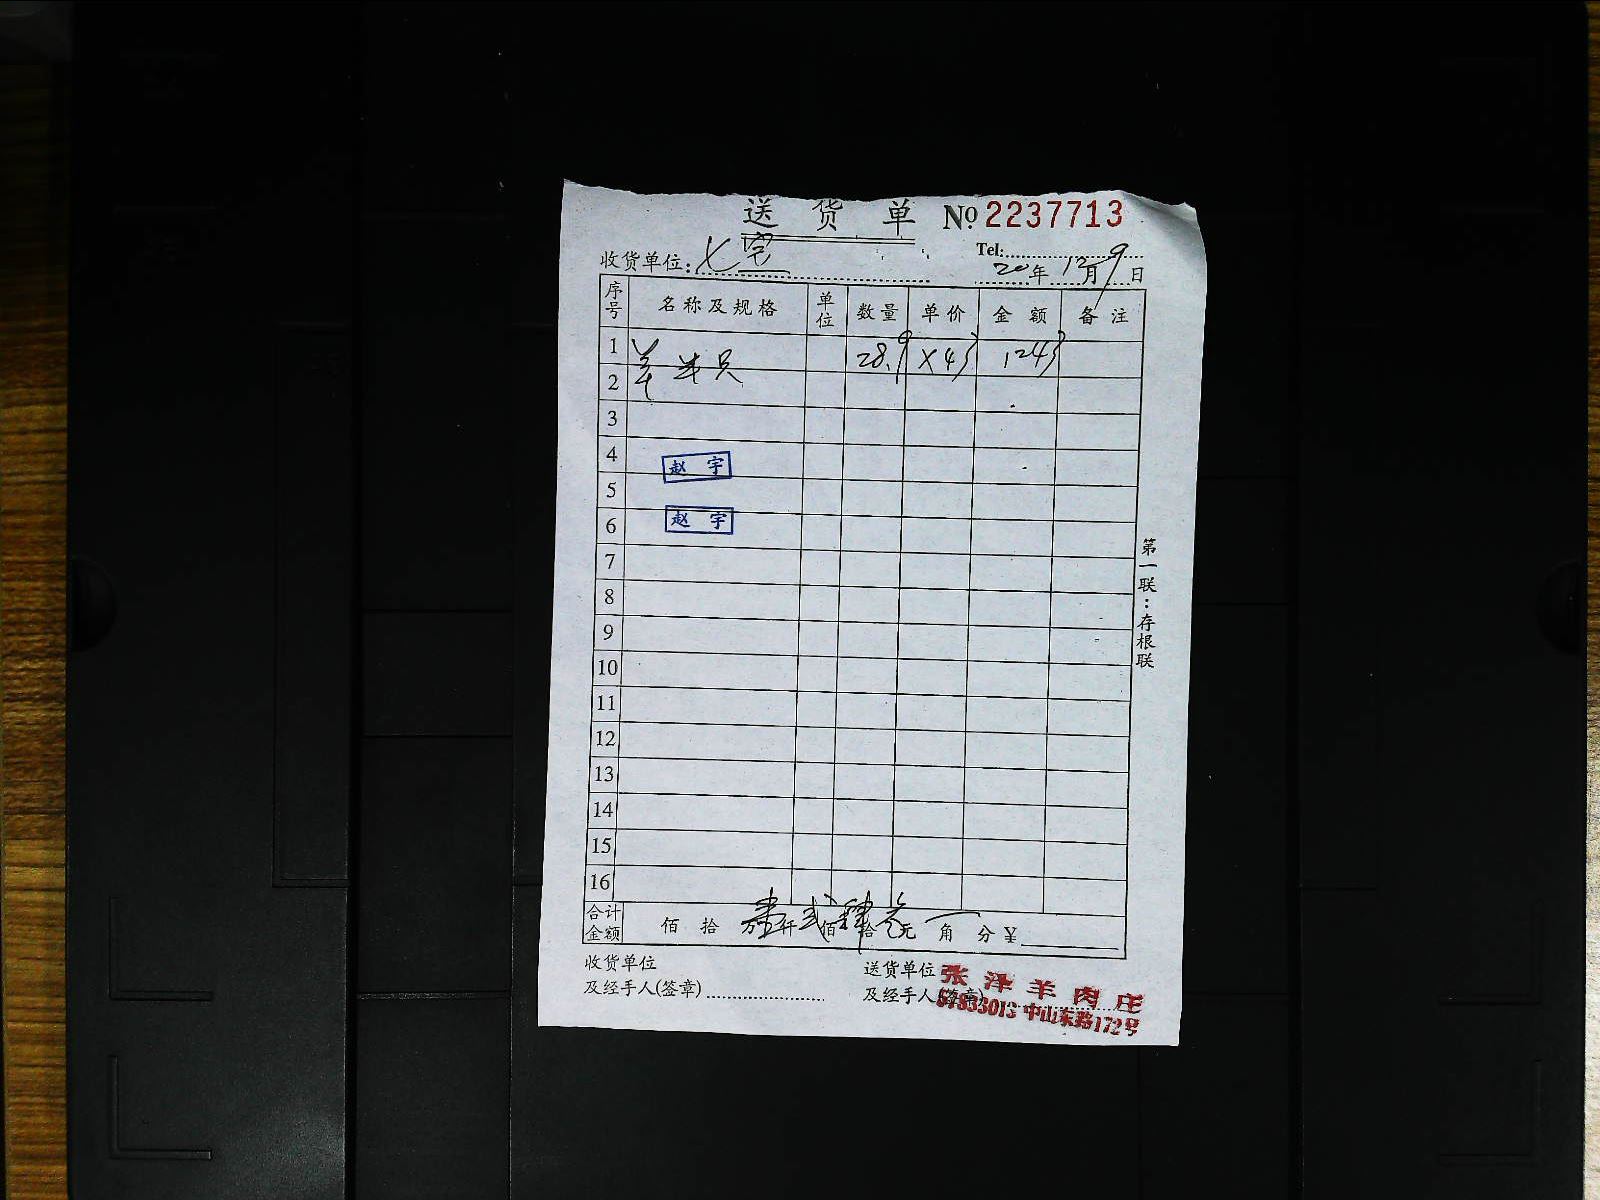 送货单 № 2237713
Tel:
收货单位: 七宝 20年12月9日
序号 名称及规格 单位 数量 单价 金额 备注
1 羊半只 28.9 ×43 1243
2
3
4 赵宇
5
6 赵宇
7
8
9
10
11
12
13
14
15
16
第一联:存根联
合计金额 佰 拾 万壹仟贰佰肆拾叁元 角 分 ¥
收货单位 送货单位 张泽羊肉庄
及经手人(签章) 及经手人(签章) 57833013 中山东路172号